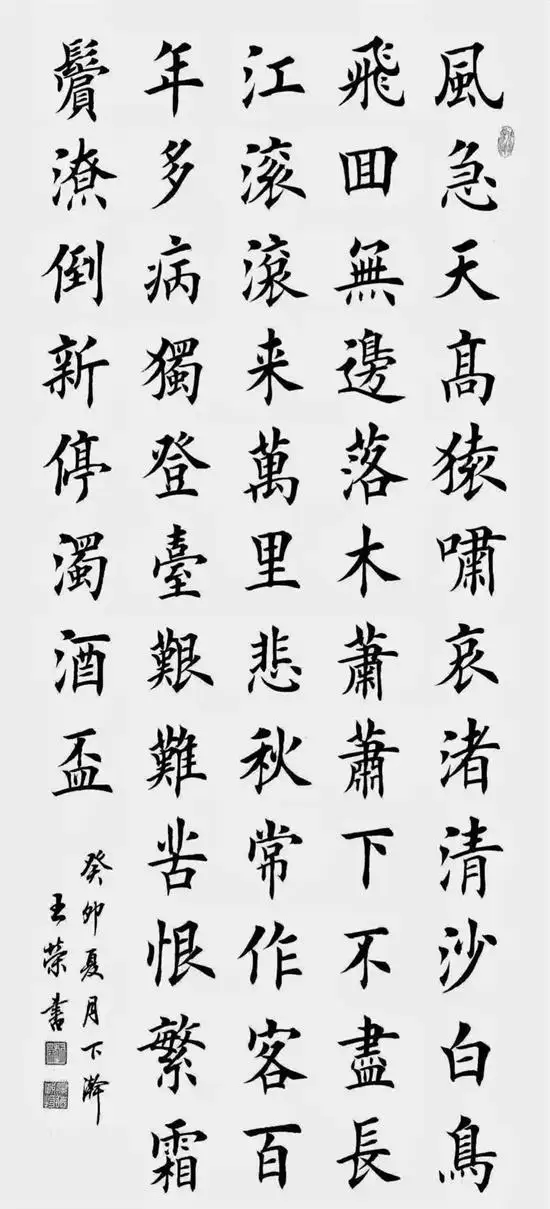 風急天髙猿嘯哀渚清沙白鳥
飛囬無邊落木蕭蕭下不盡長
江滚滚来萬里悲秋常作客百
年多病獨登臺艱難苦恨繁霜
鬢潦倒新停濁酒盃
癸卯夏月下澣
王榮書